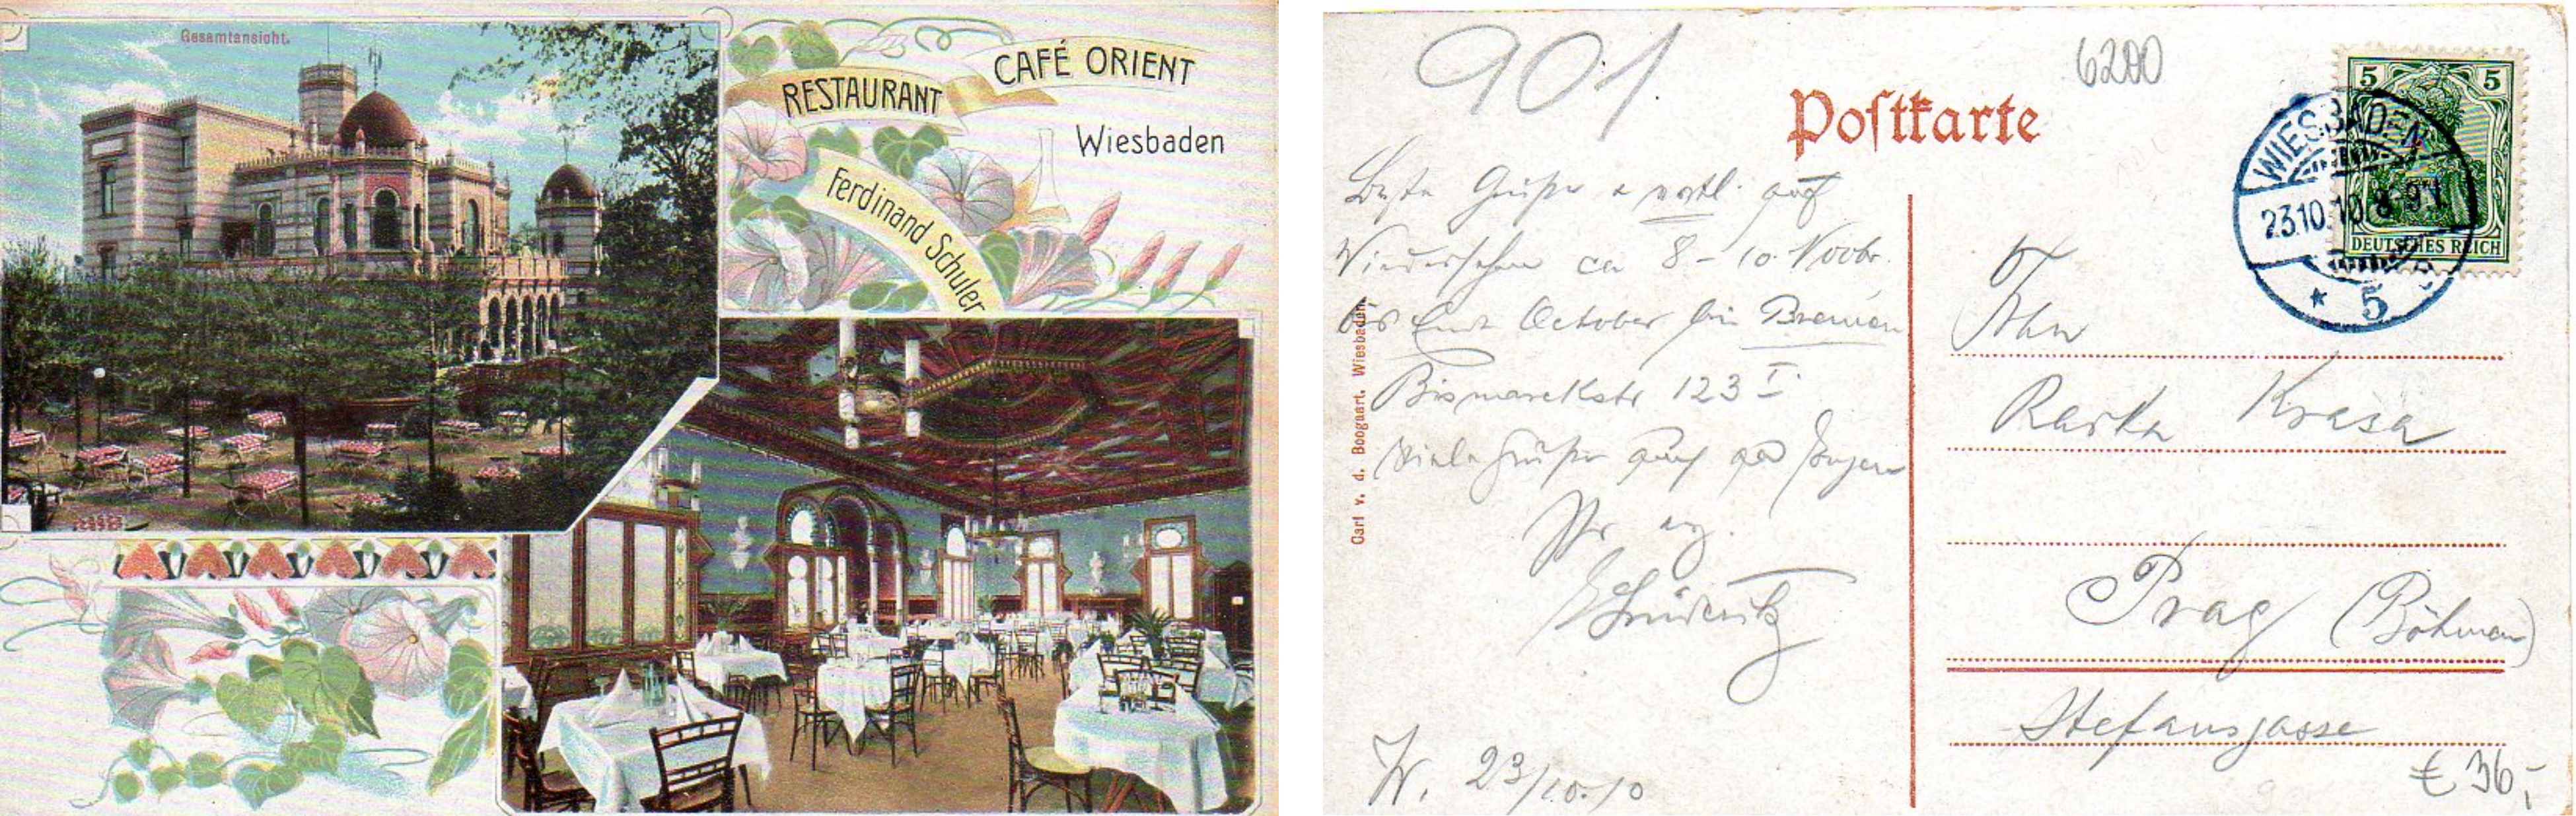 Gesamtansicht.
RESTAURANT
CAFÉ ORIENT
Wiesbaden
Ferdinand Schuler
901
6200
Postkarte
5 5
DEUTSCHES REICH
WIESBADEN
23.10.10. 8-9
* 5
Beste Grüße auf
Wiedersehen ca 8-10. Novbr.
bis Ende October bin Bremen
Bismarckstr 123 I.
Viele Grüße
Carl v. d. Boogaart. Wiesbaden.
W. 23/10.10
Krasa
Prag (Böhmen)
Stefansgasse
€ 36,-